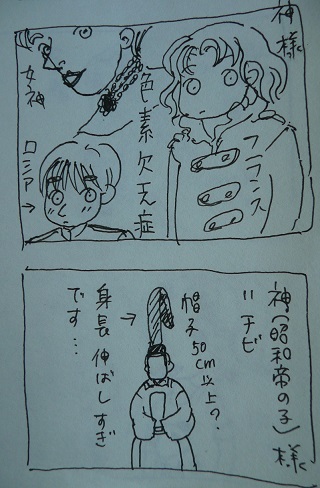 神様
フランス
色素欠乏症
女神
ロシア
神(昭和帝の子)様
=チビ
帽子50cm以上?
身長伸ばしすぎ
です…